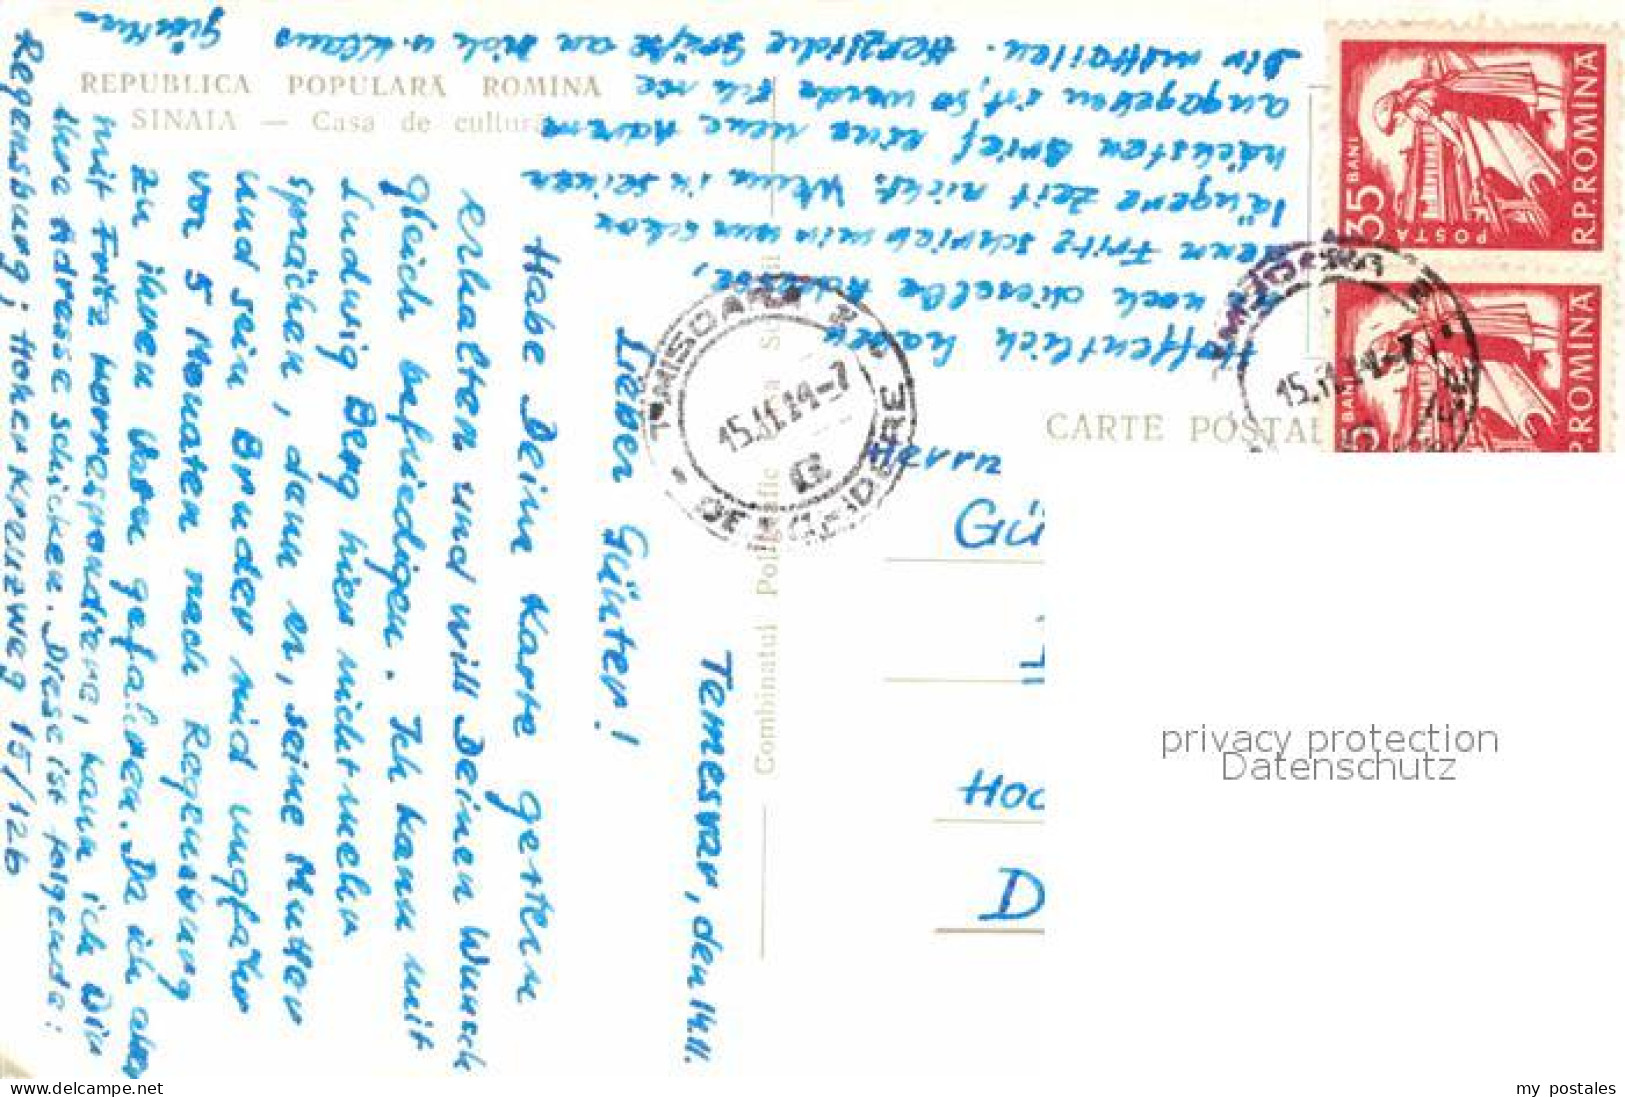 REPUBLICA POPULARĂ ROMÎNA
SINAIA — Casa de cultură
Combinatul Poligrafic
CARTE POSTA
Temesvar, den 14.11.
Lieber Günter!
Habe Deine Karte gestern
erhalten und will Deinen Wunsch
gleich befriedigen. Ich kann mit
Ludwig Berg hier nicht mehr
sprächen, dann er, seine Mutter
und sein Bruder sind ungfähr
vor 5 Monaten nach Regensburg
zu ihren Vater gefahren. Da ich aber
mit Fritz korrespondiere, kann ich Dir
ihre Adresse schicken. Diese ist folgende:
Regensburg; Hoher Kreuzweg 15/126
Hoffentlich haben
sie noch dieselbe Adresse,
denn Fritz schrieb mir nun schon
längere Zeit nicht. Wenn in seinen
nächsten Brief eine neue
angegeben ist, so werde ich sie
Dir mitteilen. Herzliche Grüße an Dich u. Klaus
Günther
Herrn
GÜ
HOC
D
35 BANI
POSTA
R.P.ROMINA
BANI
R.P.ROMINA
TIMISOARA
15.11.14-7
15.11.14-7
privacy protection
Datenschutz
www.delcampe.net
my_postales